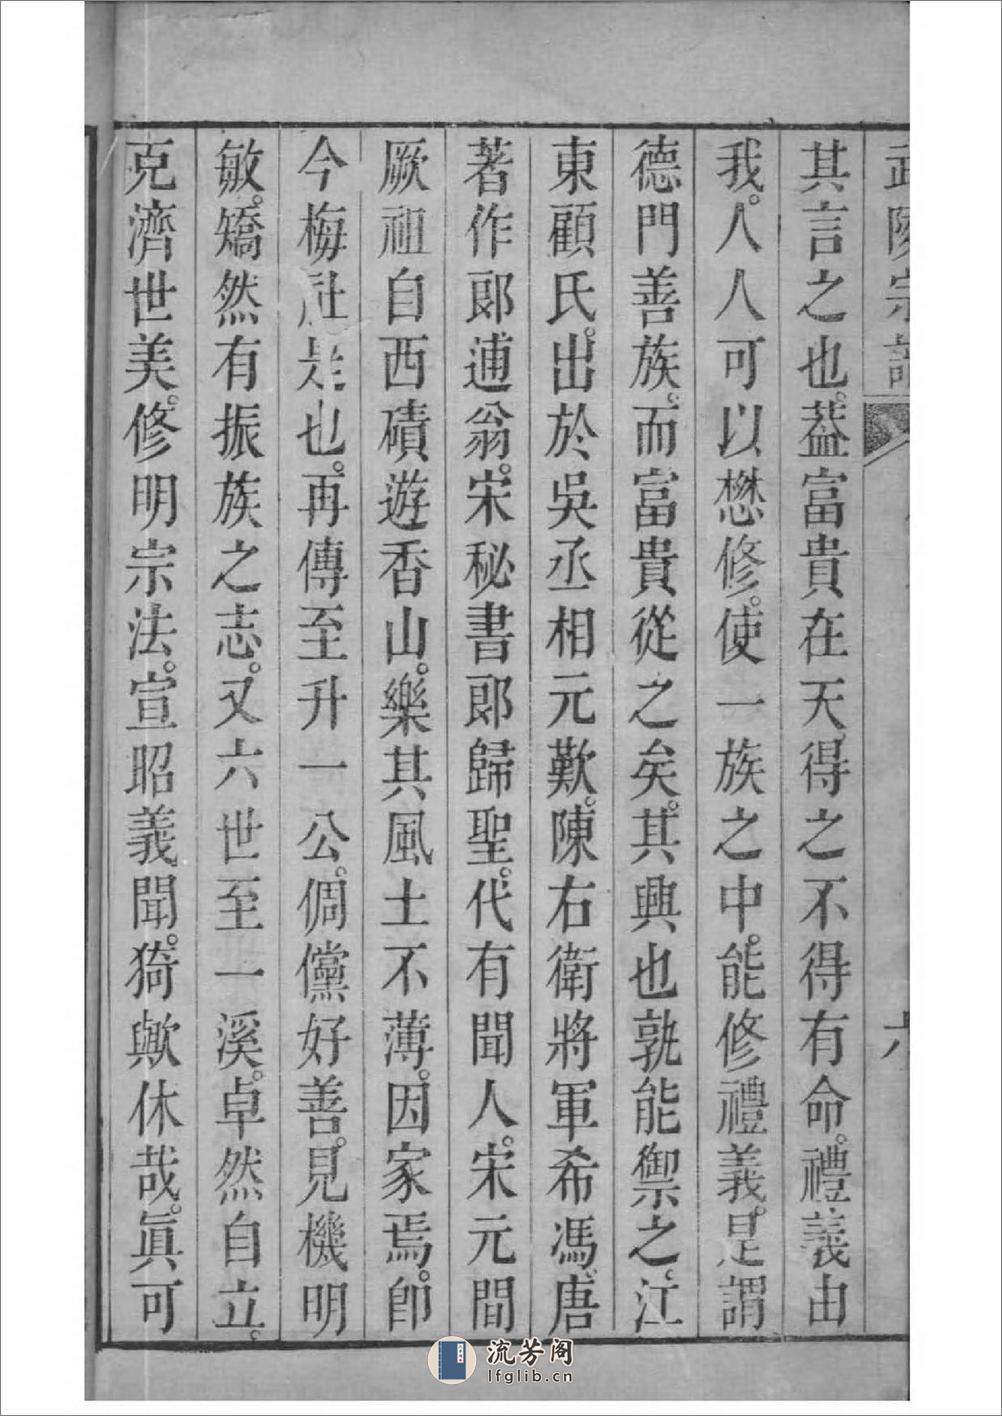 武陵宗譜
六
其言之也蓋富貴在天得之不得有命禮義由
我人人可以懋修使一族之中能修禮義是謂
德門善族而富貴從之矣其興也孰能禦之江
東顧氏出於吳丞相元歎陳右衛將軍希馮唐
著作郎逋翁宋秘書郎歸聖代有聞人宋元間
厥祖自西磧遊香山樂其風土不薄因家焉卽
今梅社是也再傳至升一公倜儻好善見機明
敏矯然有振族之志又六世至一溪卓然自立
克濟世美修明宗法宣昭義聞猗歟休哉眞可
流芳阁
lfglib.cn